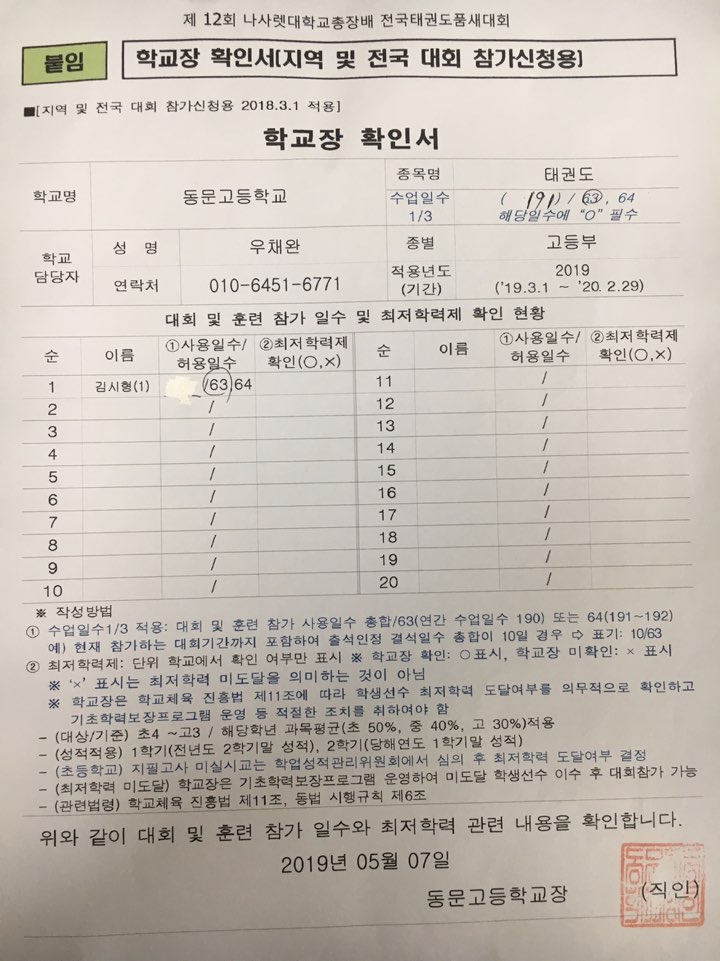 제 12회 나사렛대학교총장배 전국태권도품새대회
붙임
학교장 확인서(지역 및 전국 대회 참가신청용)
■[지역 및 전국 대회 참가신청용 2018.3.1 적용]
학교장 확인서
학교명 동문고등학교 종목명 태권도
수업일수 1/3 ( 191 ) / 63 , 64
해당일수에 “O” 필수
학교 담당자 성 명 우채완 종별 고등부
연락처 010-6451-6771 적용년도 (기간) 2019
('19.3.1 ~ '20. 2.29)
대회 및 훈련 참가 일수 및 최저학력제 확인 현황
순 이름 ①사용일수/허용일수 ②최저학력제 확인(○,×) 순 이름 ①사용일수/허용일수 ②최저학력제 확인(○,×)
1 김시형(1) /63,64 11 /
2 / 12 /
3 / 13 /
4 / 14 /
5 / 15 /
6 / 16 /
7 / 17 /
8 / 18 /
9 / 19 /
10 / 20 /
※ 작성방법
① 수업일수1/3 적용: 대회 및 훈련 참가 사용일수 총합/63(연간 수업일수 190) 또는 64(191~192)
예) 현재 참가하는 대회기간까지 포함하여 출석인정 결석일수 총합이 10일 경우 ⇨ 표기: 10/63
② 최저학력제: 단위 학교에서 확인 여부만 표시 ※ 학교장 확인: ○표시, 학교장 미확인: × 표시
※ '×' 표시는 최저학력 미도달을 의미하는 것이 아님
※ 학교장은 학교체육 진흥법 제11조에 따라 학생선수 최저학력 도달여부를 의무적으로 확인하고
기초학력보장프로그램 운영 등 적절한 조치를 취하여야 함
- (대상/기준) 초4 ~고3 / 해당학년 과목평균(초 50%, 중 40%, 고 30%)적용
- (성적적용) 1학기(전년도 2학기말 성적), 2학기(당해연도 1학기말 성적)
- (초등학교) 지필고사 미실시교는 학업성적관리위원회에서 심의 후 최저학력 도달여부 결정
- (최저학력 미도달) 학교장은 기초학력보장프로그램 운영하여 미도달 학생선수 이수 후 대회참가 가능
- (관련법령) 학교체육 진흥법 제11조, 동법 시행규칙 제6조
위와 같이 대회 및 훈련 참가 일수와 최저학력 관련 내용을 확인합니다.
2019년 05월 07일
동문고등학교장 (직인)